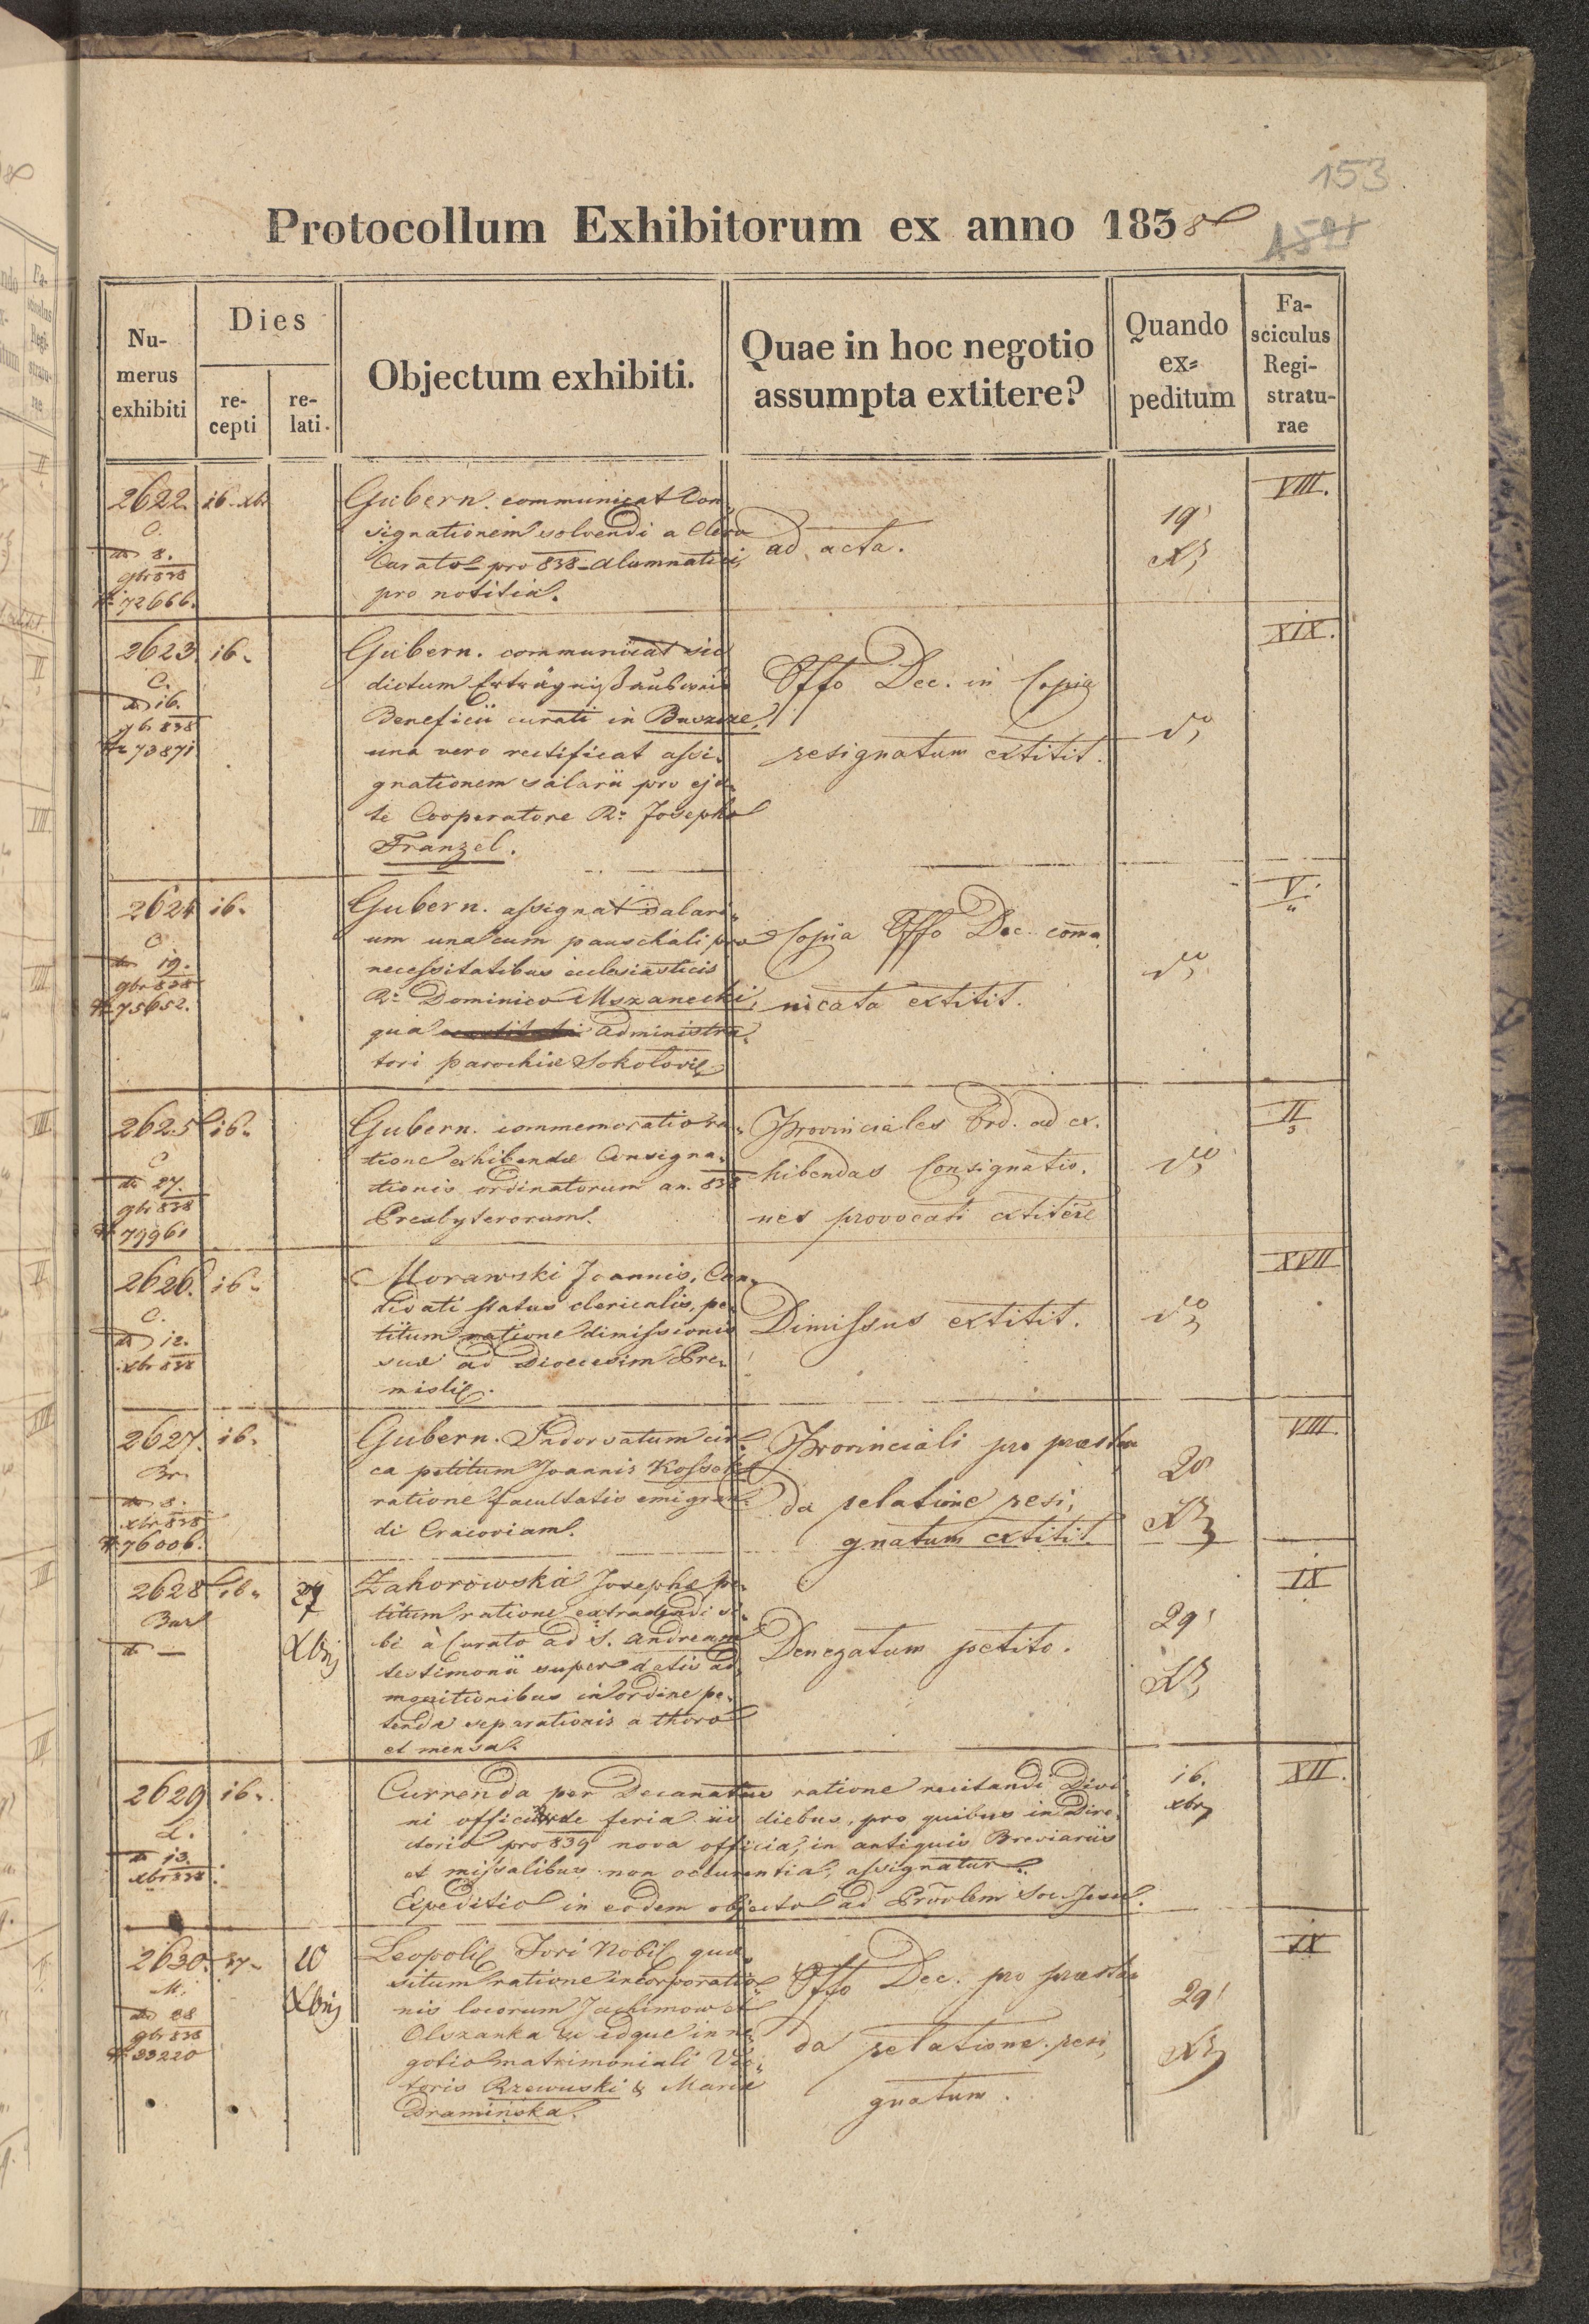 153
Protocollum Exhibitorum ex anno 1838
Numerus exhibiti
Dies
recepti
relati.
Objectum exhibiti.
Quae in hoc negotio
assumpta extitere?
Quando
ex=
peditum
Fa-
sciculus
Regi-
stratu-
rae
2622. 16. xbr
C.
do 8.
9br 838
N. 72666.
Gubern. communicat Con„
signationem solvendi a Clero
Curato pro 838 Alumnatici,
pro notitia.
ad acta.
19
VIII.
2623. 16.
C.
do 16.
9br 838
N. 73871
Gubern. communicat sic
dictum Erträgniß
Beneficii curati in
una vero rectificat assi„
gnationem salarii pro eja„
te Cooperatore R. Josepho
Franzel.
Offo Dec. in Copia
resignatum extitit.
XIX.
2624 16.
C
do 19.
9br 838
N. 75652.
Gubern. assignat Salari„
um una cum pauschali pro
necessitatibus ecclesiasticis
R. Dominico Mszanecki,
qua administra„
tori parochiæ Sokolov
Copia Offo Dec. comu„
nicata extitit.
V.
2625 16.
C
do 27.
9br 838
N. 79961
Gubern. commemoratio ra„
tione exhibendæ Consigna„
tionis ordinatorum an. 838
Presbyterorum.
Provinciales Ord. ad ex„
hibendas Consignatio„
nes provocati extitere
II
2626. 16.
C.
do 12.
xbr 838
Morawski Joannis, Can„
didati status clericalis, pe„
titum ratione dimissionis
suæ ad Dioecesim Pre„
misli.
Dimissus extitit.
XVII
2627. 16.
Br.
do 8.
xbr 838
N. 76006.
Gubern. Indorsatum cir„
ca petitum Joannis Kossak
ratione facultatis emigran„
di Cracoviam.
Provinciali pro præstan
da relatione resi„
gnatum extitit.
20
VIII.
2628 16.
Bar
do —
27
Xbris
Zahorowska Josephæ pe„
titum ratione extradendi si„
bi à Curato ad S. Andream
testimonii super datis ad
monitionibus in ordine pe„
tendæ separationis a thoro
et mensa.
Denegatum petito.
29
IX
2629 16.
L.
do 13.
xbr 838
Currenda per Decanatus ratione recitandi Divi„
ni officii de feria iis diebus, pro quibus in Dire„
ctorio pro 839 nova officia, in antiquis Breviariis
et missalibus non occurentia, assignatur.
Expeditio in eodem objecto ad Provlem Soc. Jesu.
16.
xbr
XII.
2630. 27.
M.
do 28
9br 838
N. 33220
10
Xbris
Leopoli Fori Nobil quæ„
situm ratione incorporatio„
nis locorum Jachimow et
Olszanka idque in ne„
gotio matrimoniali Vic„
toris Rzewuski & Mariæ
Dramińska.
Offo Dec. pro præstan
da relatione resi„
gnatum.
29
IX